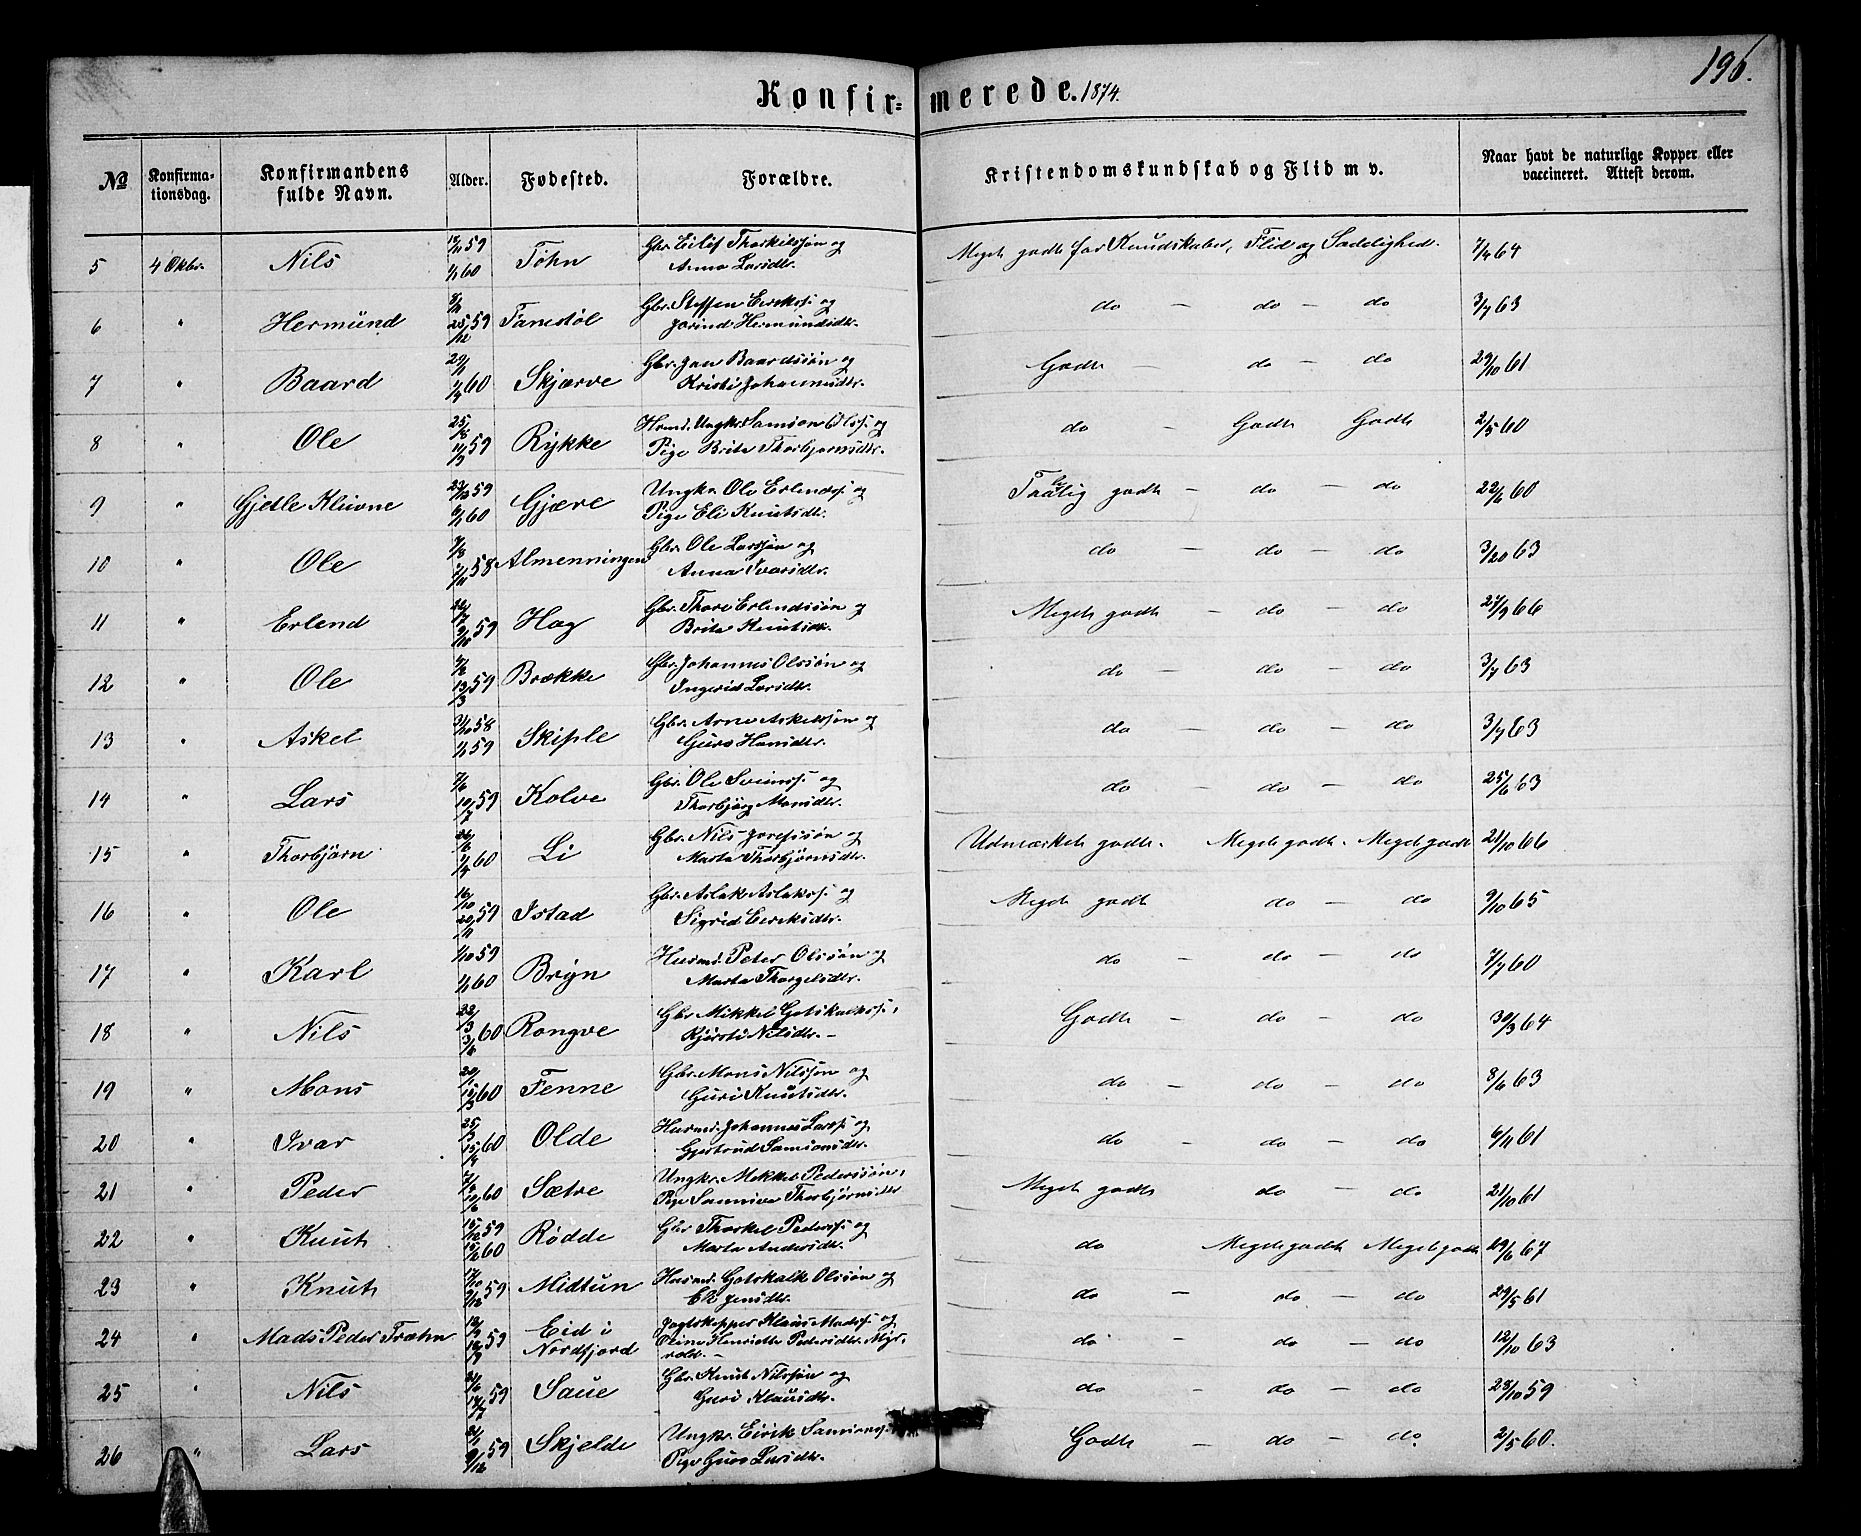 196.
Konfirmerede. 1874.
No Konfirmationsdag. Konfirmandens fulde Navn. Alder. Fødested. Forældre. Kristendomskundskab og Flid m v. Naar havt de naturlige Kopper eller vaccineret. Attest derom.
5 4 Oktbr. Nils 59 1/1 60 Töhn Gbr. Eilif Thorkilssøn og Anna Larsdtr. Meget godt for Kundskaber, Flid og Sædelighed. 7/4 64
6 " Hermund 25/12 59 Tanestøl Gbr. Steffen Eirikss. og Jorind Hermundsdtr. do — do — do 3/7 63
7 " Baard 60 Skjærve Gbr. Jan Baardssøn og Kristi Johannesdtr. Godt — do — do 29/10 61
8 " Ole 25/8 59 Rykke Ungkr. Samson Olss. og Pige Brita Thorbjørnsdtr. do — Godt Godt 2/5 60
9 " Gjetle Kluvne 59 6/1 60 Gjære Ungkr. Ole Erlendss. og Pige Eli Knutsdtr. Taalelig godt — do — do 22/6 60
10 " Ole 58 Almenningen Gbr. Ole Larssøn og Anna Ivarsdtr. do — do — do 3/20 63
11 " Erlend 59 Hæg Gbr. Thore Erlendssøn og Brita Knutsdtr. Meget godt — do — do 27/9 66
12 " Ole 13/3 59 Brække Gbr. Johannes Olssøn og Ingerid Larsdtr. do — do — do 3/7 63
13 " Askel 31/10 58 1/1 59 Skiple Gbr. Arne Askelssøn og Guro Hansdtr. do — do — do 3/7 63
14 " Lars 7/6 10/7 59 Kolve Gbr. Ole Sveinss. og Thorbjørg Monsdtr. do — do — do 25/6 63
15 " Thorbjørn 60 Li Gbr. Nils Josefssøn og Marta Thorbjørnsdtr. Udmærket godt. Meget godt. Meget godt 21/10 66
16 " Ole 16/10 20/11 59 Istad Gbr. Aslak Aslakss. og Sigrid Eiriksdtr. Meget godt do — do 9/10 65
17 " Karl 1/10 59 1/1 60 Bryn Husmd. Peter Olssøn og Marta Thorgilsdtr. do — do — do 7/7 60
18 " Nils 22/3 60 Rongve Gbr. Mikkel Gotskalkss. Kjersti Nilsdtr. — Godt — do — do 30/9 64
19 " Mons 60 Fenne Gbr. Mons Nilssøn og Guri Knutsdtr. do — do — do 8/6 63
20 " Ivar 25/3 60 Olde Husmd. Johannes Larss. og Gjertrud Samsonsdtr. do — do — do 6/11 61
21 " Peder 10/6 60 Sætre Ungkr. Mikkel Pederssøn, Pige Sanniva Thorbjørnsdtr Meget godt do — do 21/10 61
22 " Knut 15/12 59 60 Rødde Gbr Thorkel Pederss. og Marta Andersdtr. do Meget godt Meget godt 29/6 67
23 " Knut 17/10 9/12 59 Midtun Husmd. Gotskalk Olssøn og Eli Jensdtr. do — do — do 29/5 61
24 " Mads Peder Træhn 59 Eid i Nordfjord Jagtskipper Klaus Madss. og Oline Henriette Pedersdtr. Myrvold. — do — do — do 12/10 63
25 " Nils 59 Saue Gbr. Knut Nilssøn og Guri Klausdtr. do — do — do 28/10 59
26 " Lars 59 Skjelde Ungkr. Eirik Samsonss. Pige Guro Larsdtr. Godt — do — do. 2/5 60.